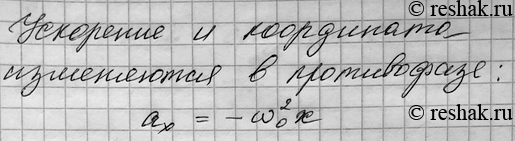 reshak.ru
Ускорение и координата
изменяются в противофазе:
aₓ = -ω₀²x
reshak.ru